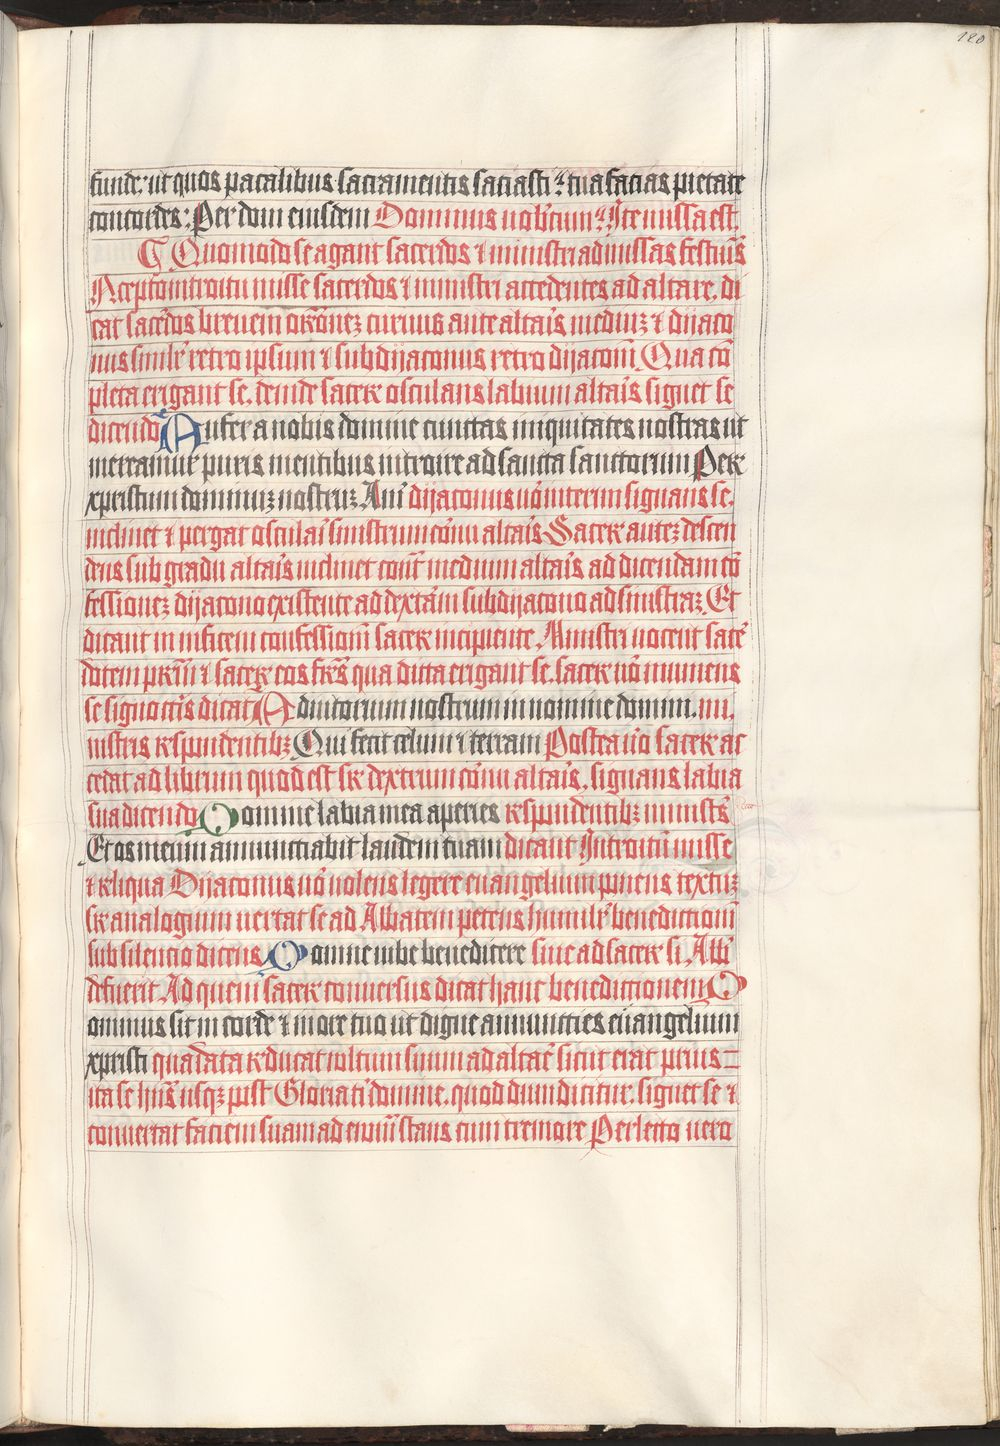 120
funde: ut quos pacalibus sacramentis saciasti: tua facias pietate
concordes: Per dom eiusdem Dominus nobiscum: Ite missa est.
Quomodo se agant sacerdos ⁊ ministri ad missas festiuis
Accepto introitu misse sacerdos ⁊ ministri accedentes ad altare. di
cat sacerdos breuem orōneꝫ curuus ante altaīs mediuꝫ ⁊ dijaco
nus similr̄ retro ipsum ⁊ subdijaconus retro dijaconū Qua cō
pleta erigant se. deinde sacerͬ osculans labium altaīs signet se
dicendo Aufer a nobis domine cunctas iniquitates nostras ut
mereamur puris mentibus introire ad sancta sanctorum Per
xpristum dominuꝫ nostruꝫ. Am̄ dijaconus uō interim signans se.
inclinet ⁊ pergat osculaī sinistrum cōnu altaīs. Sacer auteꝫ descen
dens sub gradu altaīs inclinet cont̄ medium altaīs ad dicendam cō
fessioneꝫ dijacono existente ad dextām subdijacono ad sinistraꝫ. Et
dicant in inficem confessionū sacer incipiente. Ministri uocent sac̄
dotem pr̄m ⁊ sacer eos fr̄s qua dicta erigant se. sacer uō muniens
se signo c̄cis dicat Adiutorium nostrum in nomine domini. mi.
nistris respundentibꝫ Qui fecit celum ⁊ terram Postea uō sacer ac
cedat ad librum quod est sr̄ dextrum cōnu altaīs. signans labia
sua dicendo Domine labia mea aperies respundentibꝫ minist̄s
Et os meum annunciabit laudem tuam dicant Introitū misse
⁊ reliqua Dijaconus uō uolens legere euangelium pniens textuꝫ
sr̄ analogium uertat se ad Abbatem petens humilr̄ benedictionū
sub silencio dicens Domne iube benedicere siue ad sacer si Abb̄
defuerit. Ad quem sacer conuersus dicat hanc benedictionem D
ominus sit in corde ⁊ in ore tuo ut digne annuncies euangelium
xpristi qua data reducat uoltum suum ad altar̄ sicut erat prius
ita se hn̄s usqꝫ pust Gloria ti domine. quod dum dicitur. signet se ⁊
conuertat faciem suam ad euūm stans cum tremore Perlecto uero